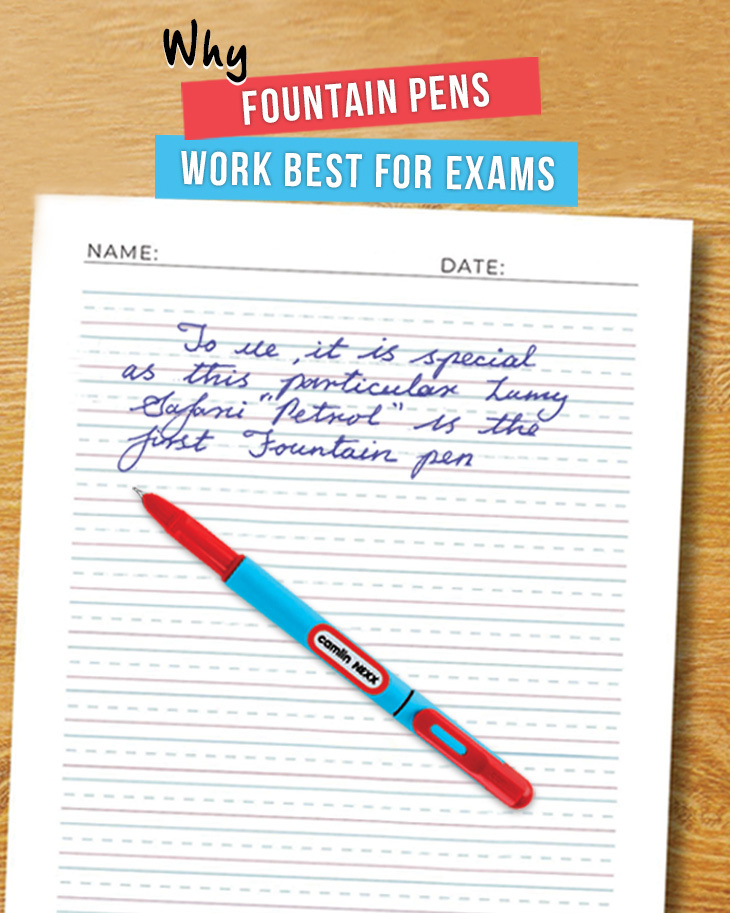 Why
FOUNTAIN PENS
WORK BEST FOR EXAMS
NAME:
DATE:
To me, it is special
as this particular Lamy
Safari "Petrol" is the
first Fountain pen
camlin NIXX